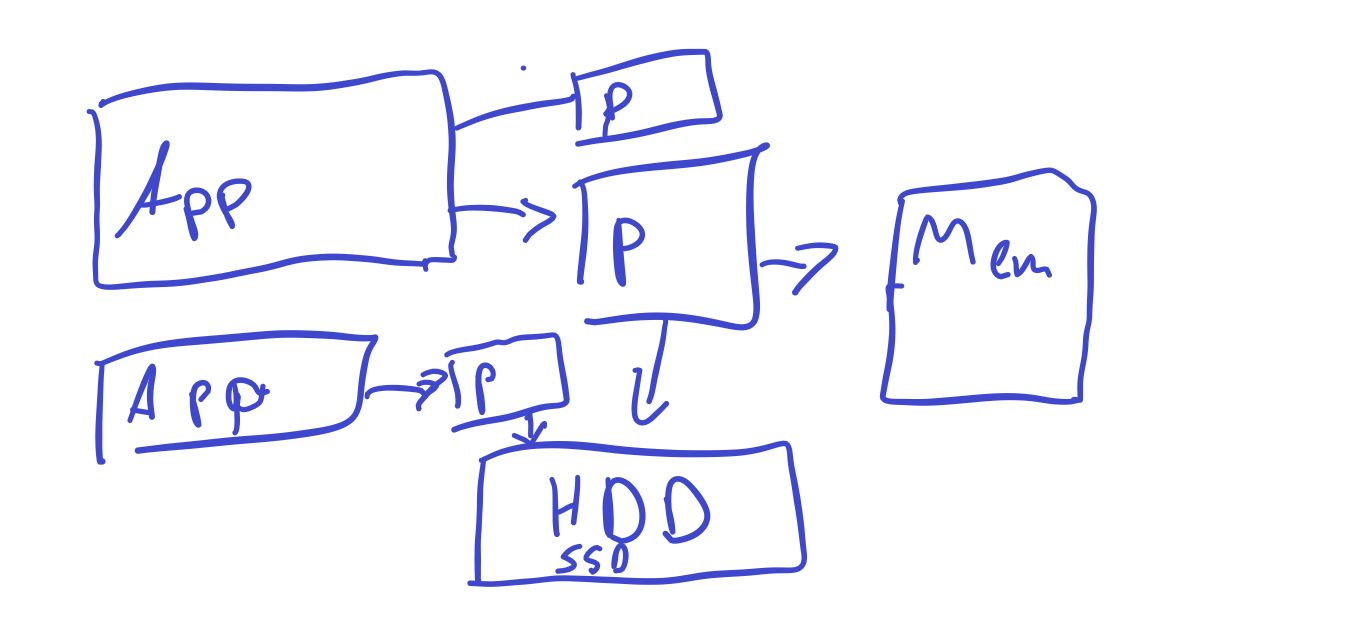 P
App
P
Mem
App
P
HDD
SSD